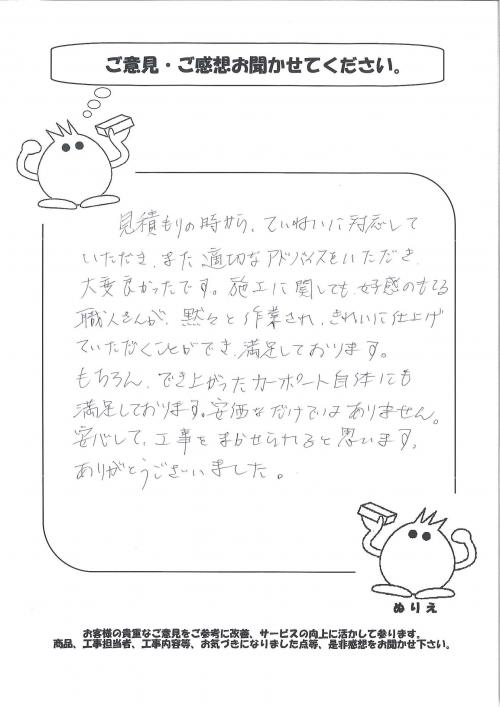 ご意見・ご感想お聞かせてください。
見積もりの時から、ていねいに対応して
いただき、また適切なアドバイスをいただき、
大変良かったです。施工に関しても、好感のもてる
職人さんが、黙々と作業され、きれいに仕上げ
ていただくことができ、満足しております。
もちろん、でき上がったカーポート自体にも
満足しております。安価なだけではありません。
安心して、工事をまかせられると思います。
ありがとうございました。
ぬりえ
お客様の貴重なご意見をご参考に改善、サービスの向上に活かして参ります。
商品、工事担当者、工事内容等、お気づきになりました点等、是非感想をお聞かせ下さい。